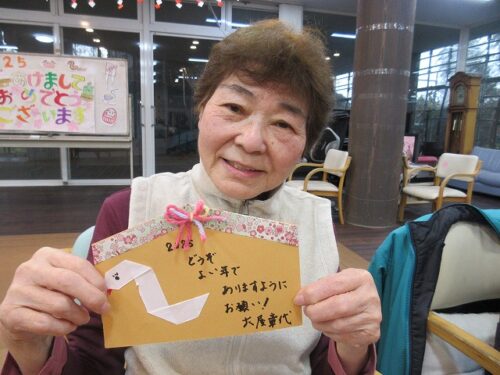 25
あけまして
おめでとう
ございます
2025
どうぞ
よい年で
ありますように
お願い!
大屋章代